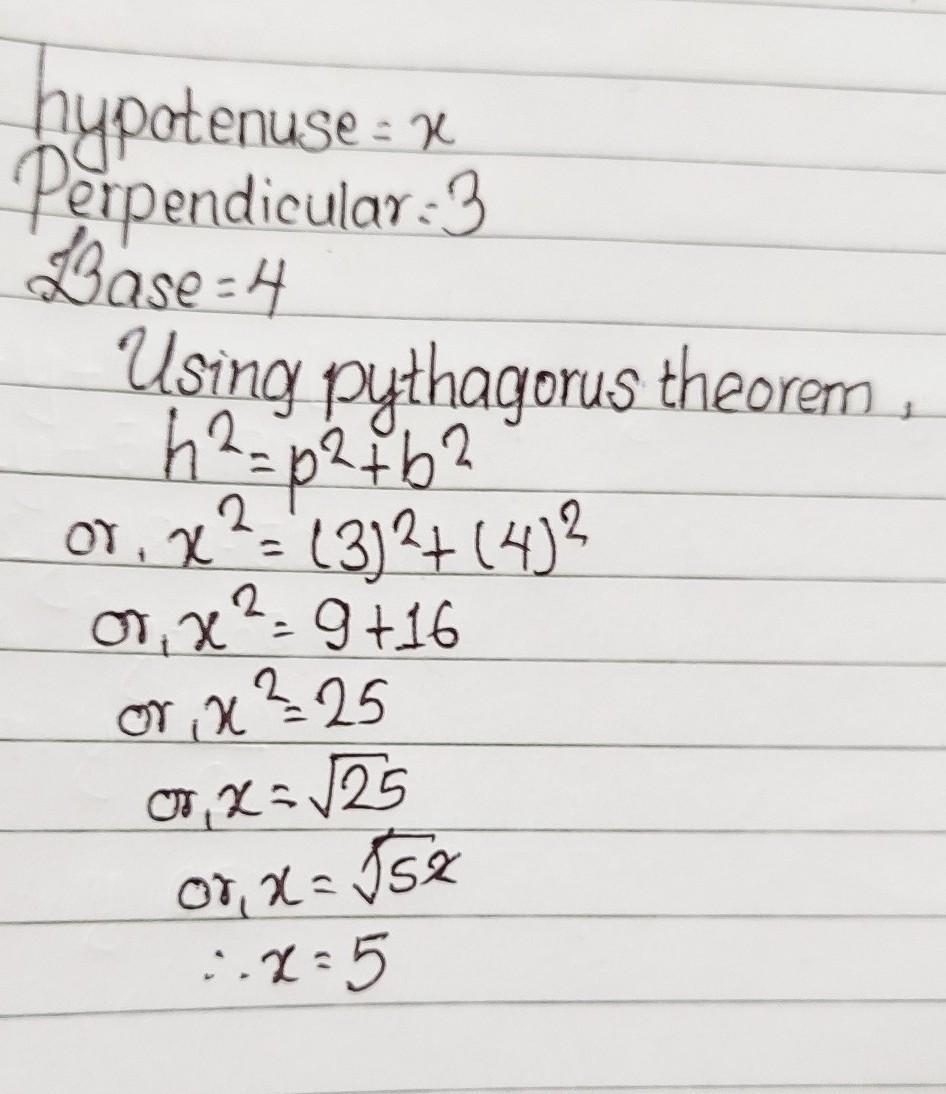 hypotenuse = x
Perpendicular = 3
Base = 4
Using pythagorus theorem,
h² = p² + b²
or, x² = (3)² + (4)²
or, x² = 9 + 16
or, x² = 25
or, x = √25
or, x = √5²
∴ x = 5